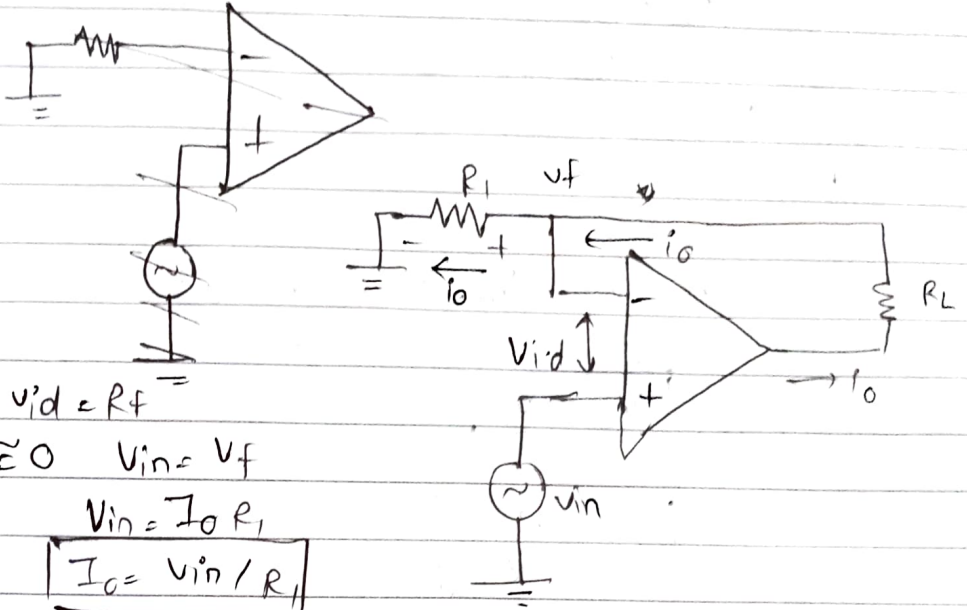 -
+
R1 Vf
- + io
io
-
RL
Vid
+
Io
Vin
Vid = Rf
≅ 0 Vin = Vf
Vin = Io R1
Io = Vin / R1